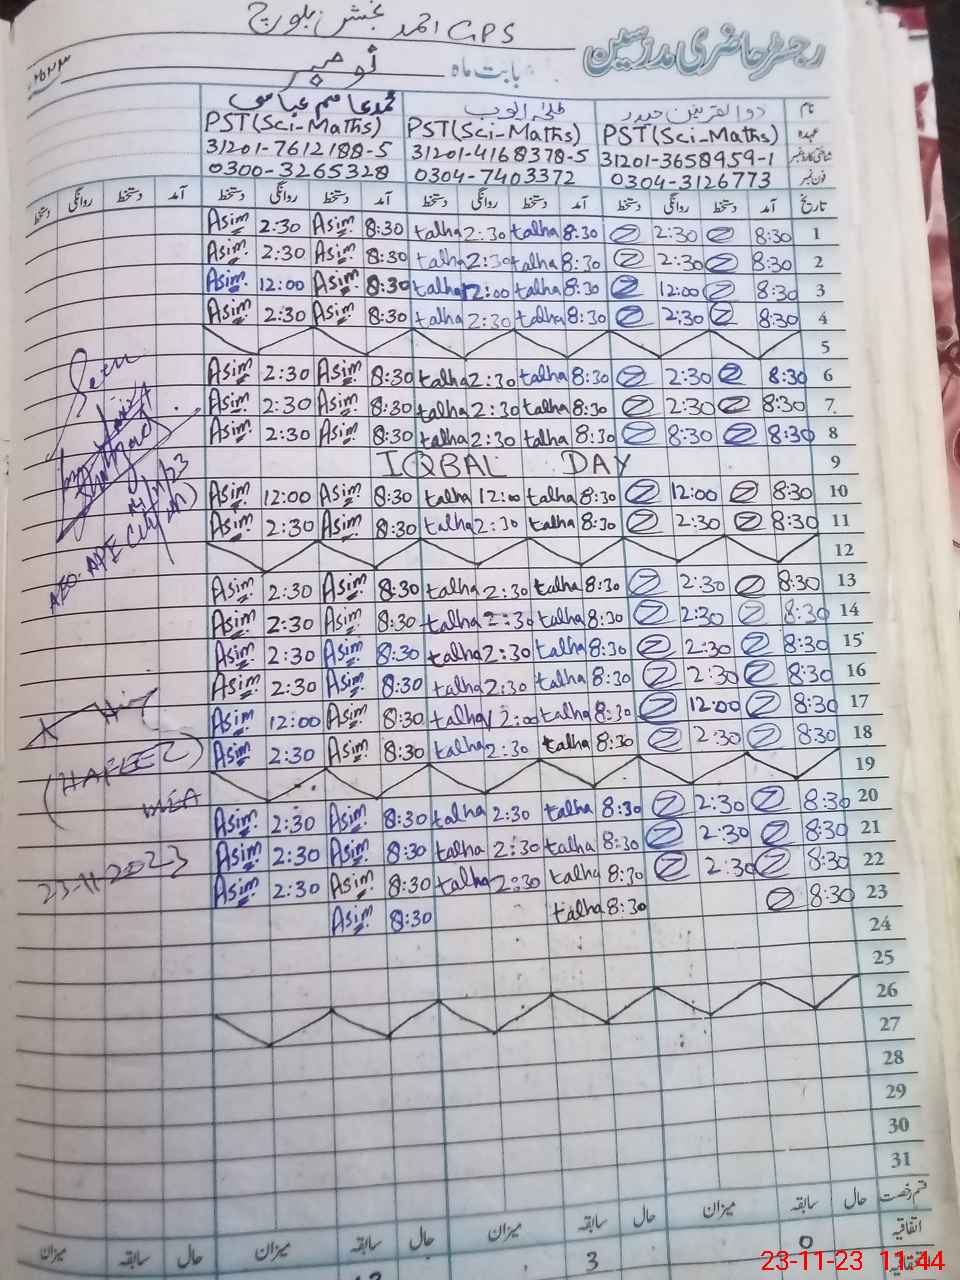 GPS احمد بخش بلوچ
رجسٹر حاضری مدرسین
بابت ماہ نومبر ۲۰۲۳ء
نام ذوالقرنین حیدر طلحہ ایوب محمد عاصم عباسی
عہدہ PST(Sci-Maths) PST(Sci-Maths) PST(Sci-Maths)
شناختی کارڈ نمبر 31201-3658959-1 31201-4168378-5 31201-7612188-5
فون نمبر 0304-3126773 0304-7403372 0300-3265328
تاریخ آمد دستخط روانگی دستخط آمد دستخط روانگی دستخط آمد دستخط روانگی دستخط آمد دستخط روانگی دستخط
Asim 2:30 Asim 8:30 talha 2:30 talha 8:30 2:30 8:30 1
Asim 2:30 Asim 8:30 talha 2:30 talha 8:30 2:30 8:30 2
Asim 12:00 Asim 8:30 talha 12:00 talha 8:30 12:00 8:30 3
Asim 2:30 Asim 8:30 talha 2:30 talha 8:30 2:30 8:30 4
5
Asim 2:30 Asim 8:30 talha 2:30 talha 8:30 2:30 8:30 6
Asim 2:30 Asim 8:30 talha 2:30 talha 8:30 2:30 8:30 7
Asim 2:30 Asim 8:30 talha 2:30 talha 8:30 8:30 8:30 8
IQBAL DAY 9
Asim 12:00 Asim 8:30 talha 12:00 talha 8:30 12:00 8:30 10
Asim 2:30 Asim 8:30 talha 2:30 talha 8:30 2:30 8:30 11
12
Asim 2:30 Asim 8:30 talha 2:30 talha 8:30 2:30 8:30 13
Asim 2:30 Asim 8:30 talha 2:30 talha 8:30 2:30 8:30 14
Asim 2:30 Asim 8:30 talha 2:30 talha 8:30 2:30 8:30 15
Asim 2:30 Asim 8:30 talha 2:30 talha 8:30 2:30 8:30 16
Asim 12:00 Asim 8:30 talha 12:00 talha 8:30 12:00 8:30 17
Asim 2:30 Asim 8:30 talha 2:30 talha 8:30 2:30 8:30 18
(HAFEEZ)
MEA
19
Asim 2:30 Asim 8:30 talha 2:30 talha 8:30 2:30 8:30 20
Asim 2:30 Asim 8:30 talha 2:30 talha 8:30 2:30 8:30 21
23-11-2023
Asim 2:30 Asim 8:30 talha 2:30 talha 8:30 2:30 8:30 22
Asim 8:30 talha 8:30 8:30 23
24
25
26
27
28
29
30
31
قسم رخصت حال سابقہ میزان حال سابقہ میزان حال سابقہ میزان حال سابقہ میزان
اتفاقیہ 0 3
23-11-23 11:44